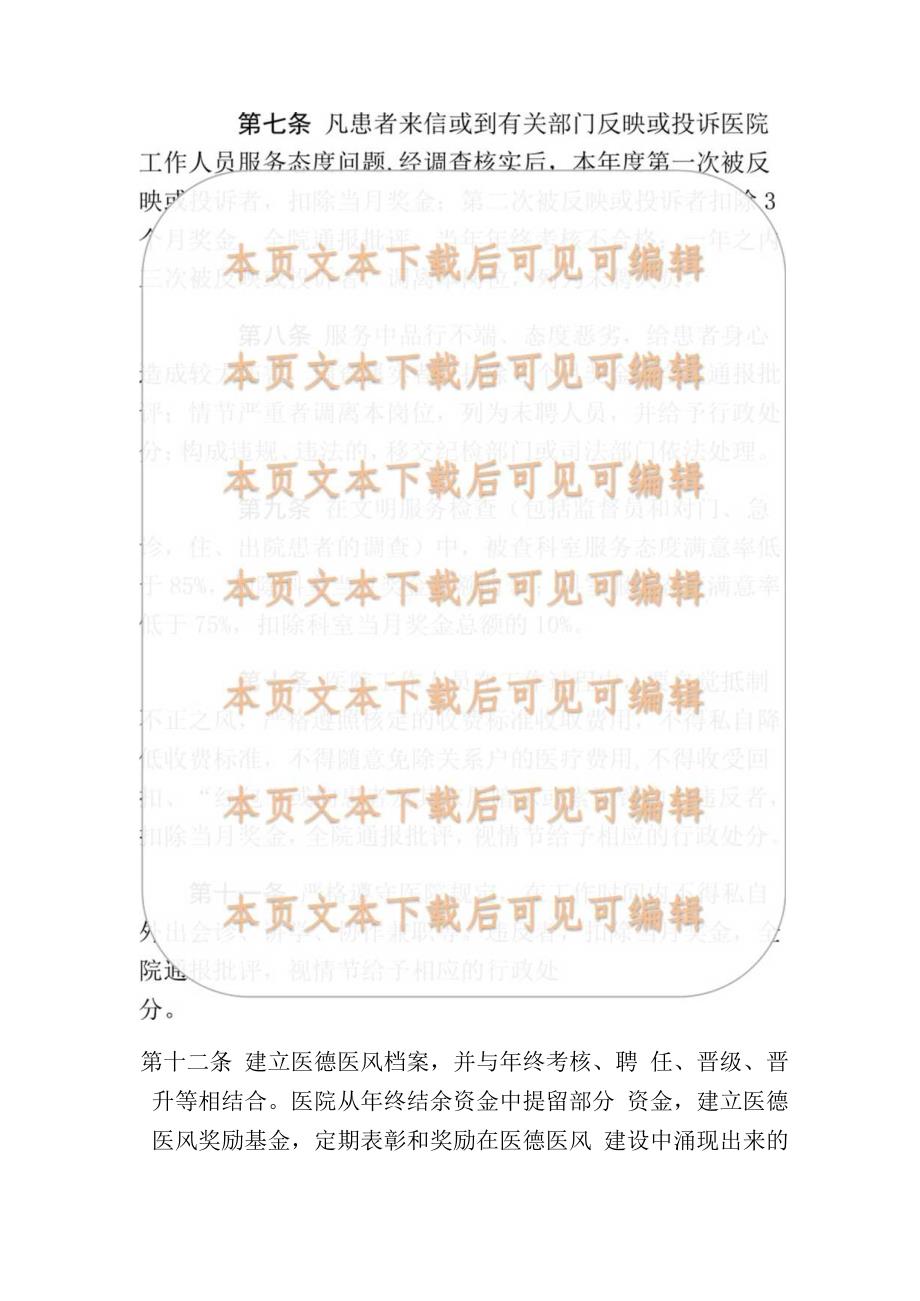 第七条 凡患者来信或到有关部门反映或投诉医院
工作人员服务态度问题,经调查核实后，本年度第一次被反
映或投诉者，扣除当月奖金；第二次被反映或投诉者扣除3
个月奖金，全院通报批评，当年年终考核不合格；一年之内
本页文本下载后可见可编辑
三次被反映或投诉者，调离本岗位，列为未聘人员。
第八条 服务中品行不端、态度恶劣，给患者身心
本页文本下载后可见可编辑
造成较大 通报批
评；情节严重者调离本岗位，列为未聘人员，并给予行政处
分；构成违规、违法的，移交纪检部门或司法部门依法处理。
本页文本下载后可见可编辑
第九条 在文明服务检查（包括监督员和对门、急
诊，住、出院患者的调查）中，被查科室服务态度满意率低
于85%， 满意率
本页文本下载后可见可编辑
低于75%，扣除科室当月奖金总额的10%。
第十条 医院工作人员在工作过程中，要自觉抵制
本页文本下载后可见可编辑
不正之风，严格遵照核定的收费标准收取费用，不得私自降
低收费标准，不得随意免除关系户的医疗费用,不得收受回
扣、“红包 违反者，
本页文本下载后可见可编辑
扣除当月奖金，全院通报批评，视情节给予相应的行政处分。
第十一条 严格遵守医院规定，在工作时间内不得私自
本页文本下载后可见可编辑
外出会诊、讲学、协作兼职等。违反者，扣除当月奖金，全
院通报批评，视情节给予相应的行政处
分。
第十二条 建立医德医风档案，并与年终考核、聘 任、晋级、晋
升等相结合。医院从年终结余资金中提留部分 资金，建立医德
医风奖励基金，定期表彰和奖励在医德医风 建设中涌现出来的